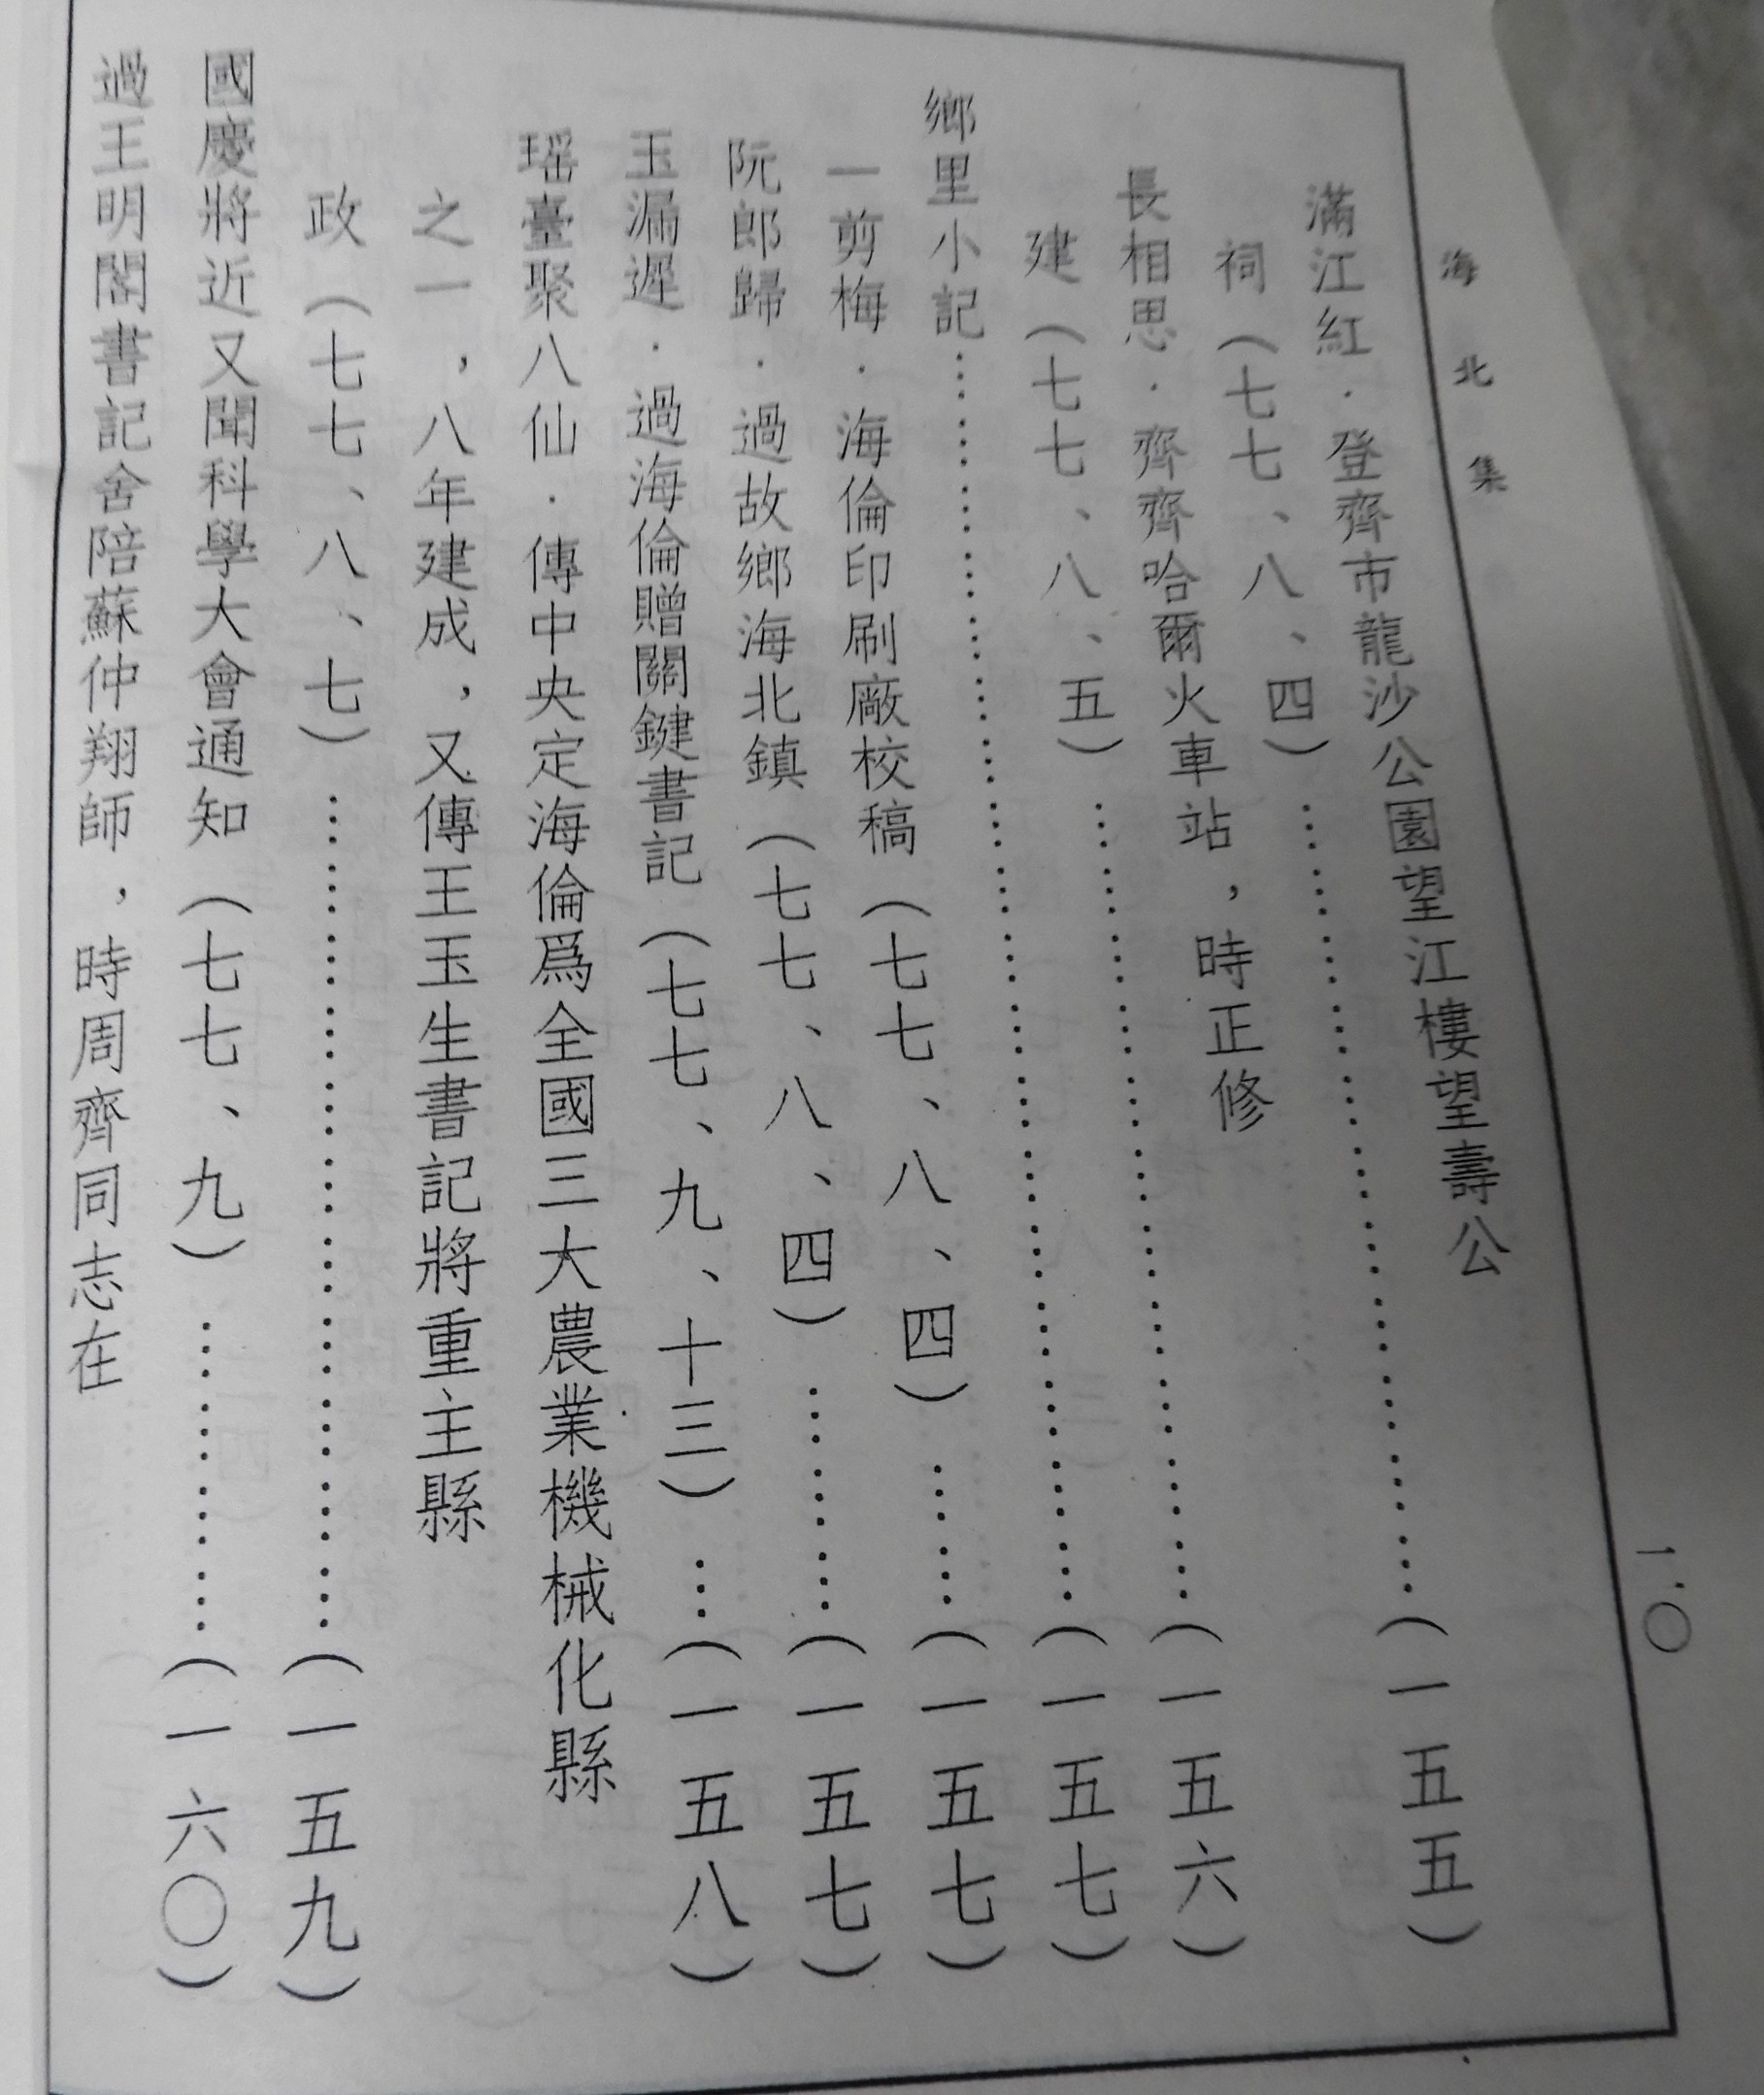 海北集
一〇
滿江紅·登齊市龍沙公園望江樓望壽公
祠（七七、八、四）……………………（一五五）
長相思·齊齊哈爾火車站，時正修
建（七七、八、五）……………………（一五六）
鄉里小記……………………（一五七）
一剪梅·海倫印刷廠校稿（七七、八、四）……（一五七）
阮郎歸·過故鄉海北鎮（七七、八、四）………（一五七）
玉漏遲·過海倫贈關鍵書記（七七、九、十三）…（一五八）
瑶臺聚八仙·傳中央定海倫爲全國三大農業機械化縣
之一，八年建成，又傳王玉生書記將重主縣
政（七七、八、七）……………………（一五九）
國慶將近又聞科學大會通知（七七、九）…………（一六〇）
過王明閣書記舍陪蘇仲翔師，時周齊同志在